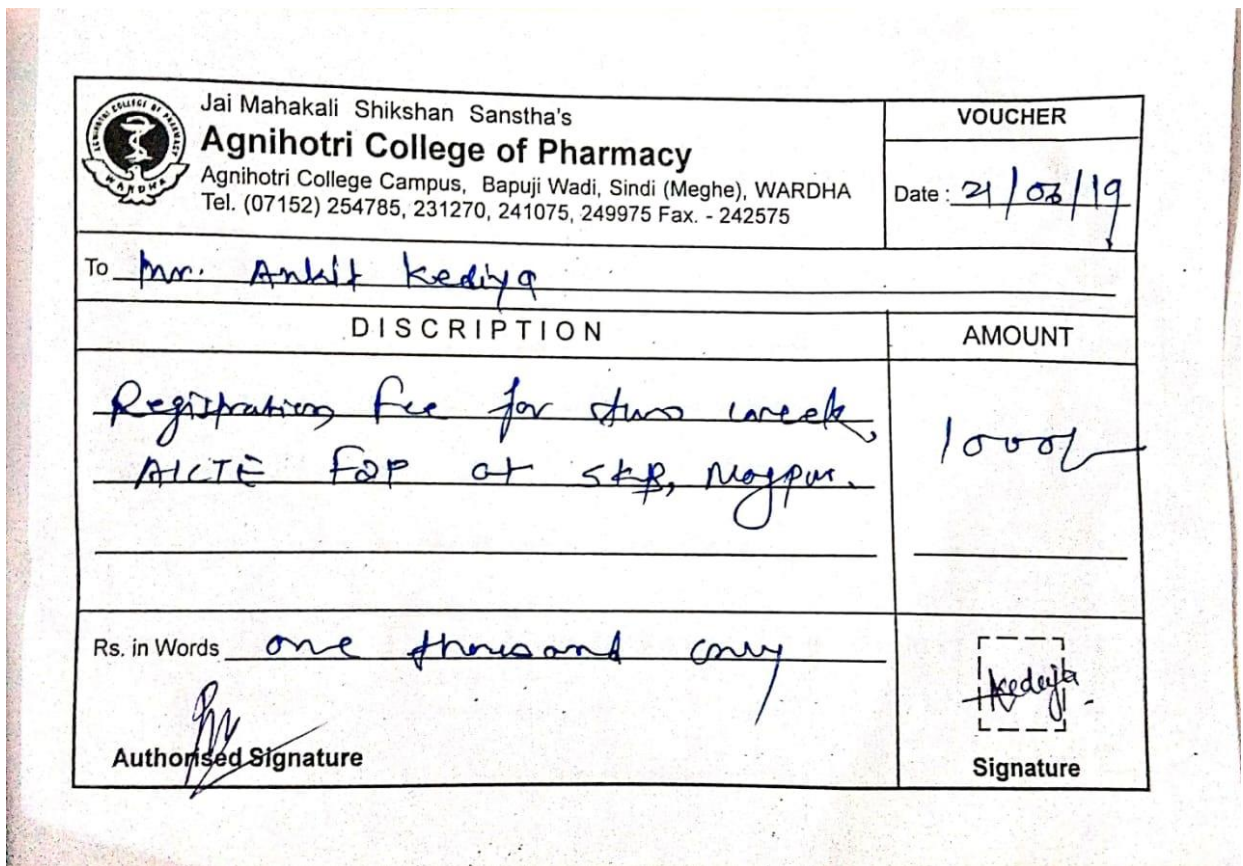 AGNIHOTRI COLLEGE OF PHARMACY
WARDHA
Jai Mahakali Shikshan Sanstha's
Agnihotri College of Pharmacy
Agnihotri College Campus, Bapuji Wadi, Sindi (Meghe), WARDHA
Tel. (07152) 254785, 231270, 241075, 249975 Fax. - 242575
VOUCHER
Date : 21/03/19
To Mr. Ankit Kediya
DISCRIPTION
AMOUNT
Registration fee for two week,
AICTE FDP at SKB, Nagpur.
1000/-
Rs. in Words one thousand only
Kediya
Authorised Signature
Signature